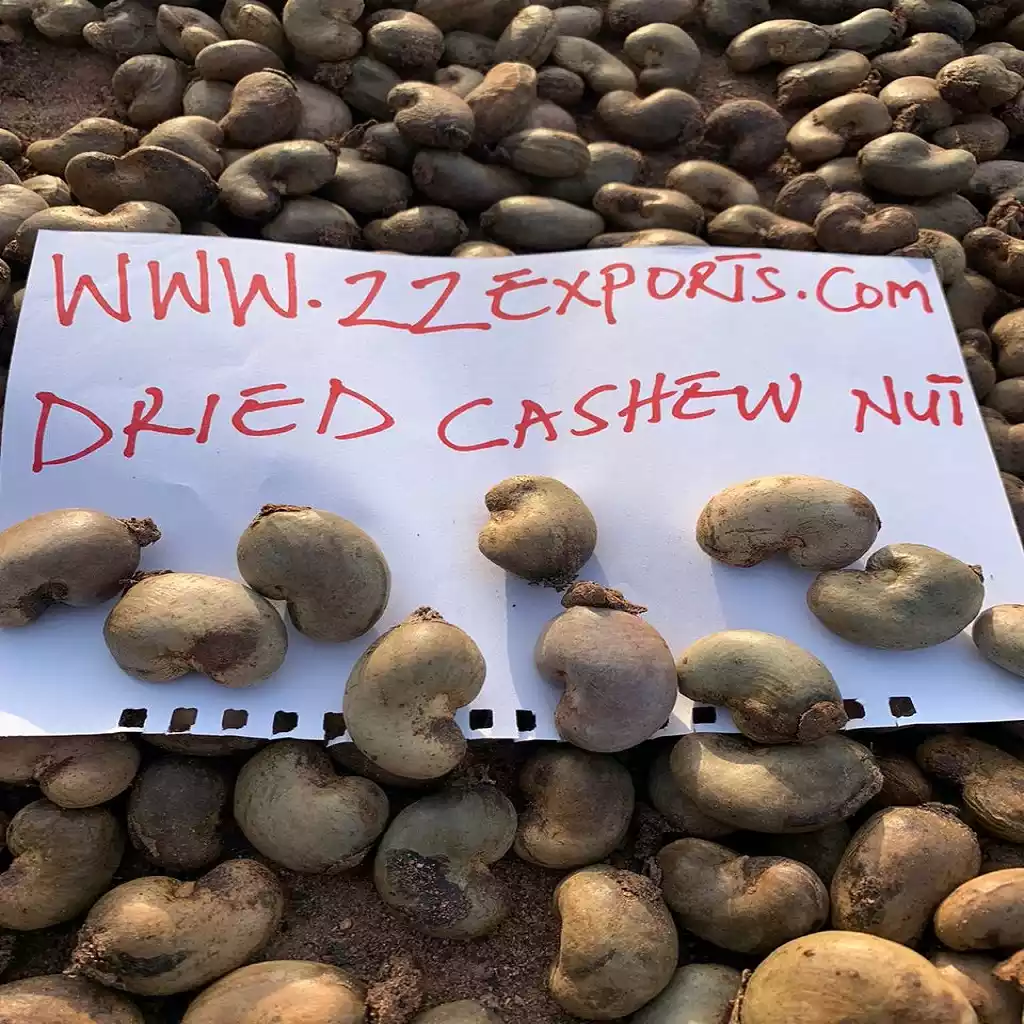 WWW.22EXPORTS.COM
DRIED CASHEW NUT